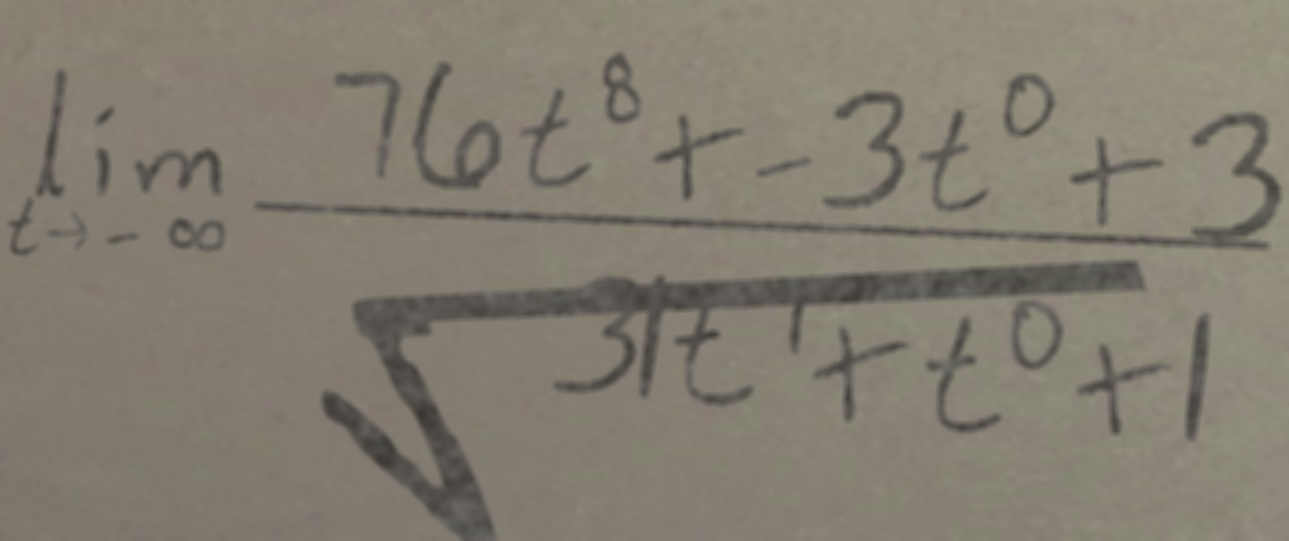 \lim_{t \to -\infty} \frac{76t^8 + -3t^0 + 3}{\sqrt{31t^1 + t^0 + 1}}